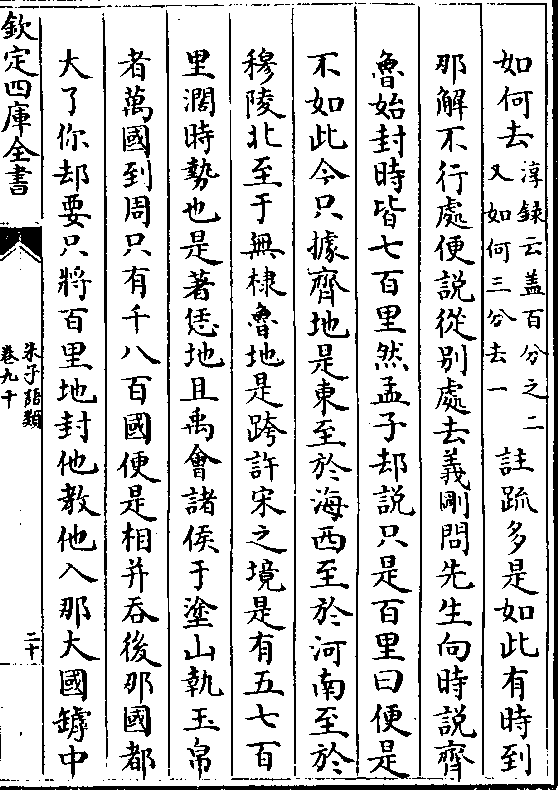 如何去淳録云盖百分之二又如何三分去一註䟽多是如此有時到
那解不行處便説從别處去義剛問先生向時説齊
魯始封時皆七百里然孟子却説只是百里曰便是
不如此今只據齊地是東至於海西至於河南至於
穆陵北至于無棣魯地是跨許宋之境是有五七百
里濶時勢也是著恁地且禹會諸侯于塗山執玉帛
者萬國到周只有千八百國便是相并吞後那國都
大了你却要只將百里地封他教他入那大國罅中
欽定四庫全書
朱子語類
卷九十
二十